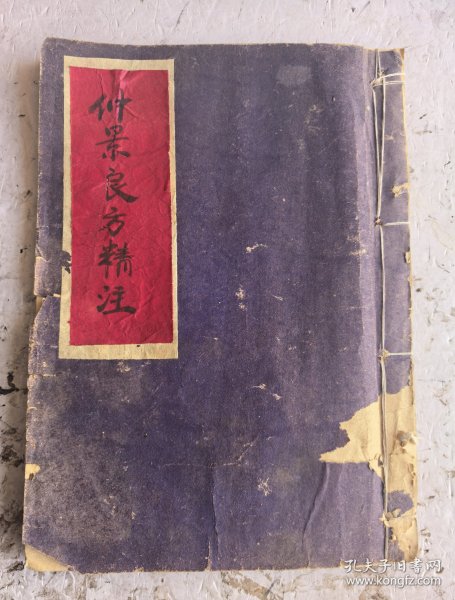 仲景良方精注
孔夫子旧书网
www.kongfz.com